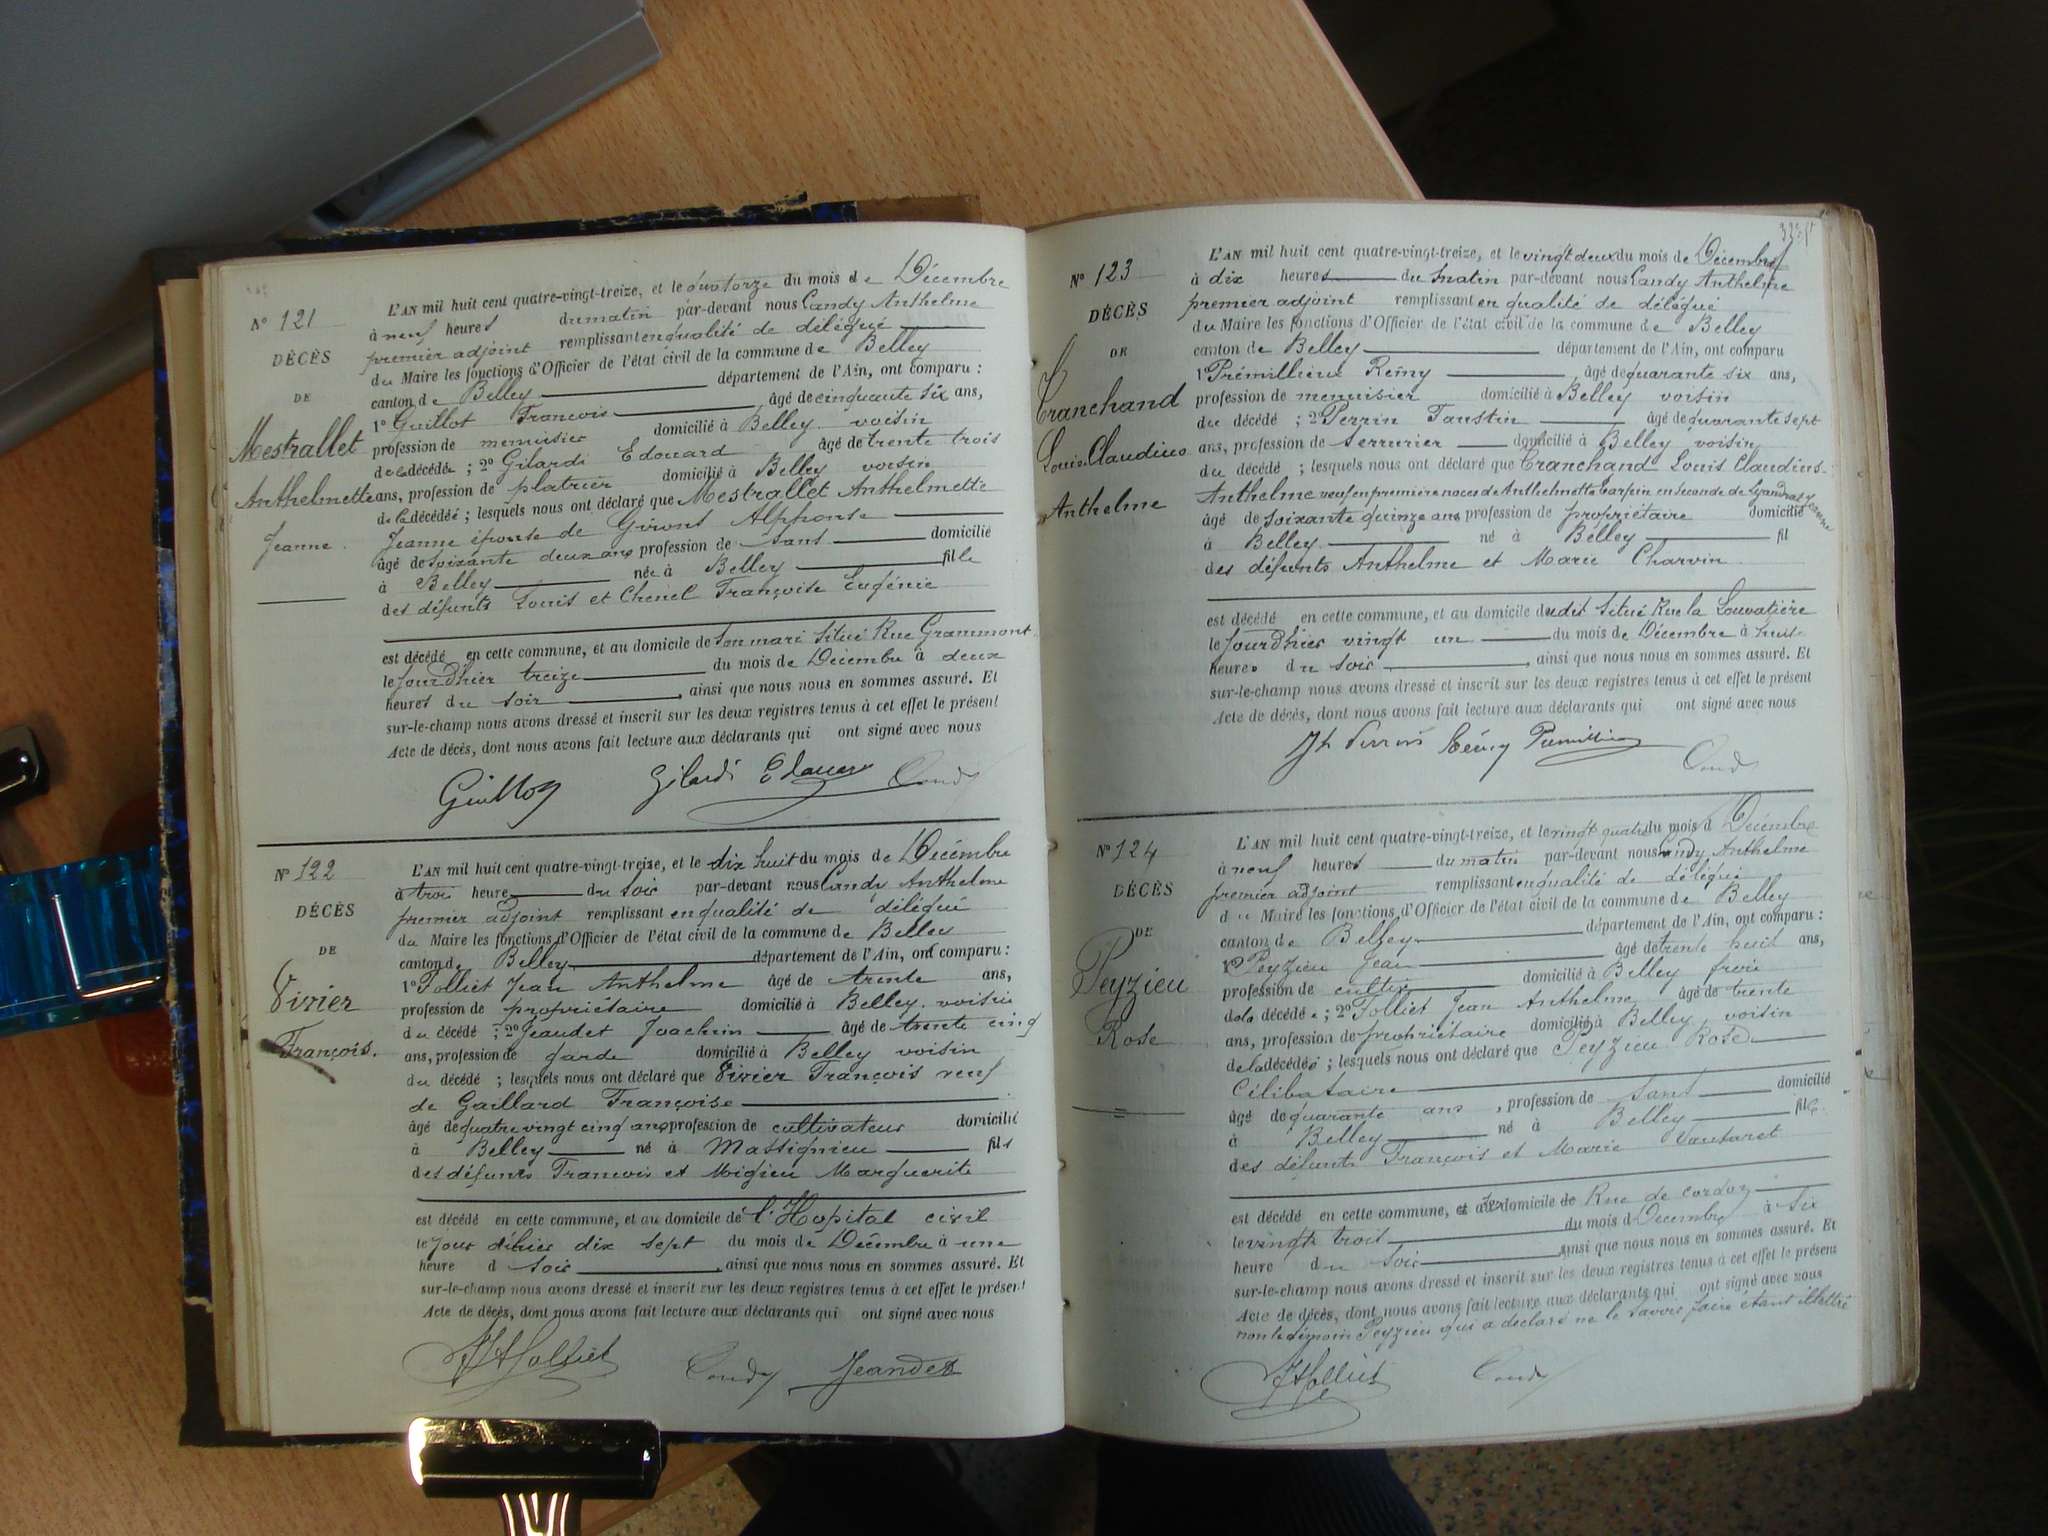 N° 121
DÉCÈS
DE
Mestrallet
Anthelmette
Jeanne
L'AN mil huit cent quatre-vingt-treize, et le quatorze du mois de Décembre
à neuf heures du matin par-devant nous Candy Anthelme
premier adjoint remplissant en qualité de délégué
du Maire les fonctions d'Officier de l'état civil de la commune de Belley
canton de Belley département de l'Ain, ont comparu :
1° Guillot François âgé de cinquante six ans,
profession de menuisier domicilié à Belley voisin
de la décédée ; 2° Gilardi Edouard âgé de trente trois
ans, profession de platrier domicilié à Belley voisin
de la décédée ; lesquels nous ont déclaré que Mestrallet Anthelmette
Jeanne épouse de Alphonse
âgé de soixante deux ans profession de sans domicilié
à Belley née à Belley fille
des défunts Louis et Chenel Françoise Eugénie
est décédé en cette commune, et au domicile de son mari situé Rue Grammont
le jour d'hier treize du mois de Décembre à deux
heures du soir, ainsi que nous nous en sommes assuré. Et
sur-le-champ nous avons dressé et inscrit sur les deux registres tenus à cet effet le présent
Acte de décès, dont nous avons fait lecture aux déclarants qui ont signé avec nous
Guillot Gilardi Edouard Candy
N° 122
DÉCÈS
DE
Vivier
François.
L'AN mil huit cent quatre-vingt-treize, et le dix huit du mois de Décembre
à trois heure du soir par-devant nous Candy Anthelme
premier adjoint remplissant en qualité de délégué
du Maire les fonctions d'Officier de l'état civil de la commune de Belley
canton de Belley département de l'Ain, ont comparu :
1° Folliet Jean Anthelme âgé de trente ans,
profession de propriétaire domicilié à Belley voisin
du décédé ; 2° Jeandet Joachim âgé de trente cinq
ans, profession de garde domicilié à Belley voisin
du décédé ; lesquels nous ont déclaré que Vivier François veuf
de Gaillard Françoise
âgé de quatre vingt cinq ans profession de cultivateur domicilié
à Belley né à Massignieu fils
des défunts François et Migieu Marguerite
est décédé en cette commune, et au domicile de l'Hopital civil
le jour d'hier dix sept du mois de Décembre à une
heure d soir, ainsi que nous nous en sommes assuré. Et
sur-le-champ nous avons dressé et inscrit sur les deux registres tenus à cet effet le présent
Acte de décès, dont nous avons fait lecture aux déclarants qui ont signé avec nous
JAFolliet Candy Jeandet
N° 123
DÉCÈS
DE
Tranchand
Louis Claudius
Anthelme
L'AN mil huit cent quatre-vingt-treize, et le vingt deux du mois de Décembre
à dix heures du matin par-devant nous Candy Anthelme
premier adjoint remplissant en qualité de délégué
du Maire les fonctions d'Officier de l'état civil de la commune de Belley
canton de Belley département de l'Ain, ont comparu
1° Prémillieu Rémy âgé de quarante six ans,
profession de menuisier domicilié à Belley voisin
du décédé ; 2° Perrin Faustin âgé de quarante sept
ans, profession de serrurier domicilié à Belley voisin
du décédé ; lesquels nous ont déclaré que Tranchand Louis Claudius
Anthelme veuf en première noces de Anthelmette Carpin en seconde de Jeanne
âgé de soixante quinze ans profession de propriétaire domicilié
à Belley né à Belley fil
des défunts Anthelme et Marie Charvin
est décédé en cette commune, et au domicile dudit situé Rue la Louvatière
le jour d'hier vingt un du mois de Décembre à huit
heures du soir, ainsi que nous nous en sommes assuré. Et
sur-le-champ nous avons dressé et inscrit sur les deux registres tenus à cet effet le présent
Acte de décès, dont nous avons fait lecture aux déclarants qui ont signé avec nous
Perrin Rémy Prémillieu Candy
N° 124
DÉCÈS
DE
Peyzieu
Rose
L'AN mil huit cent quatre-vingt-treize, et le vingt quatre du mois d Décembre
à neuf heures du matin par-devant nous Candy Anthelme
premier adjoint remplissant en qualité de délégué
du Maire les fonctions d'Officier de l'état civil de la commune de Belley
canton de Belley département de l'Ain, ont comparu :
1° Peyzieu Jean âgé de trente huit ans,
profession de cultivr domicilié à Belley frère
de la décédée ; 2° Folliet Jean Anthelme âgé de trente
ans, profession de propriétaire domicilié à Belley voisin
de la décédée ; lesquels nous ont déclaré que Peyzieu Rose
Célibataire
âgé de quarante ans, profession de sans domicilié
à Belley né à Belley fille
des défunts François et Marie Vautaret
est décédé en cette commune, et domicile de Rue de cordon
le vingt trois du mois d Décembre à six
heure du soir, ainsi que nous nous en sommes assuré. Et
sur-le-champ nous avons dressé et inscrit sur les deux registres tenus à cet effet le présent
Acte de décès, dont nous avons fait lecture aux déclarants qui ont signé avec nous
non le témoin Peyzieu qui a déclaré ne le savoir faire étant illettré
JAFolliet Candy